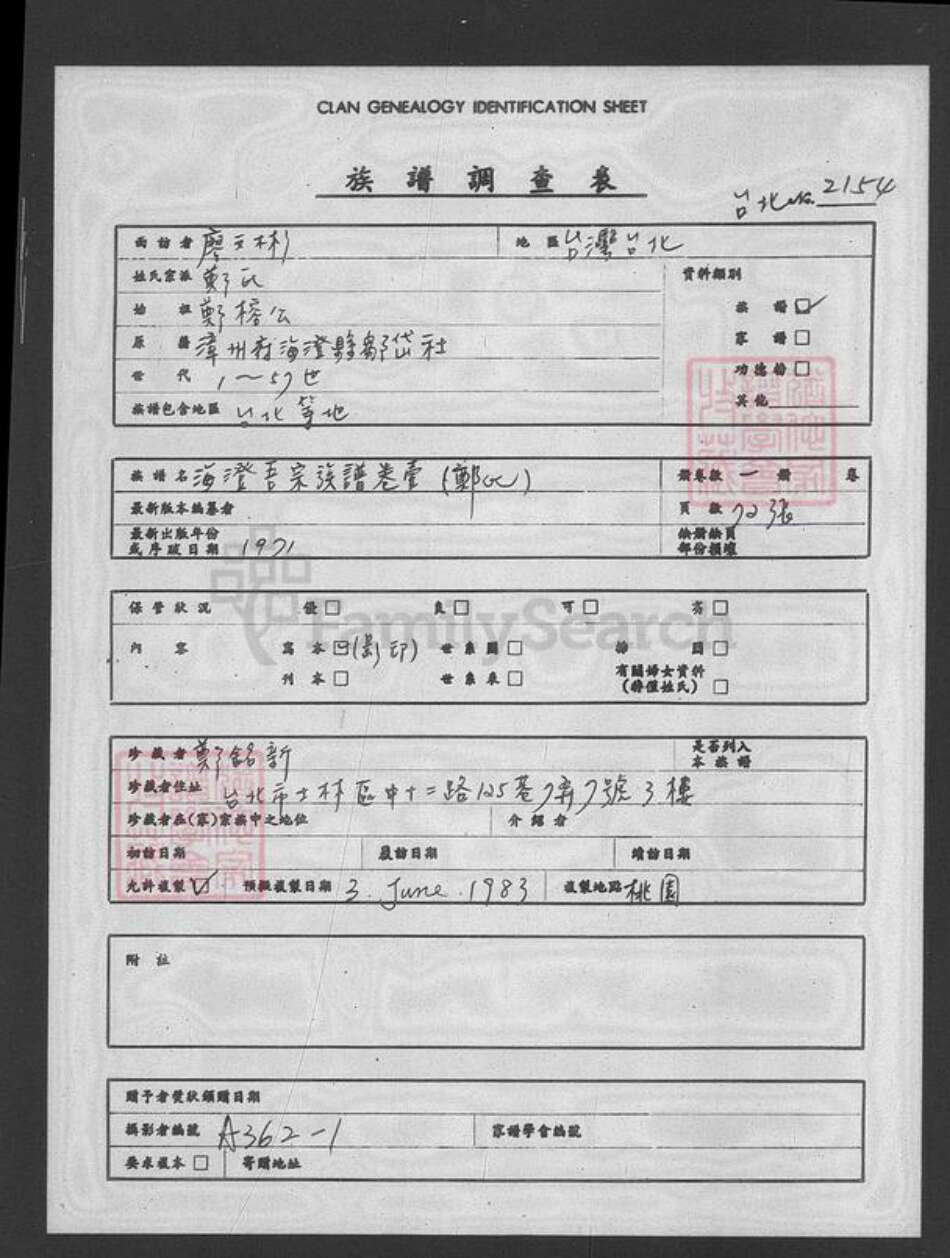 CLAN GENEALOGY IDENTIFICATION SHEET
族譜調查表
台北No. 2154
面訪者 廖文彬 地區 台灣台北
姓氏宗派 鄭氏 資料類別
始祖 鄭榕公 族譜 ☑
原籍 漳州府海澄縣鄒岱社 家譜 □
世代 1～57世 功德榜 □
族譜包含地區 台北等地 其他
族譜名 海澄吾宗族譜卷壹(鄭氏) 冊卷數 一 冊 卷
最新版本編纂者 頁數 72張
最新出版年份 缺冊缺頁
或序跋日期 1971 部份損壞
保管狀況 優□ 良□ 可□ 劣□
內容 寫本☑(影印) 世系圖□ 插圖□
刊本□ 世系表□ 有關婦女資料(特種姓氏)□
珍藏者 鄭銘新 是否列入本族譜
珍藏者住址 台北市士林區中十二路125巷7弄7號3樓
珍藏者在(家)宗族中之地位 介紹者
初訪日期 展訪日期 增訪日期
允許複製☑ 預擬複製日期 3. June. 1983 複製地點 桃園
附註
贈予者獎狀頒贈日期
攝影者編號 A362-1 家譜學會編號
要求複本□ 寄贈地址
FamilySearch